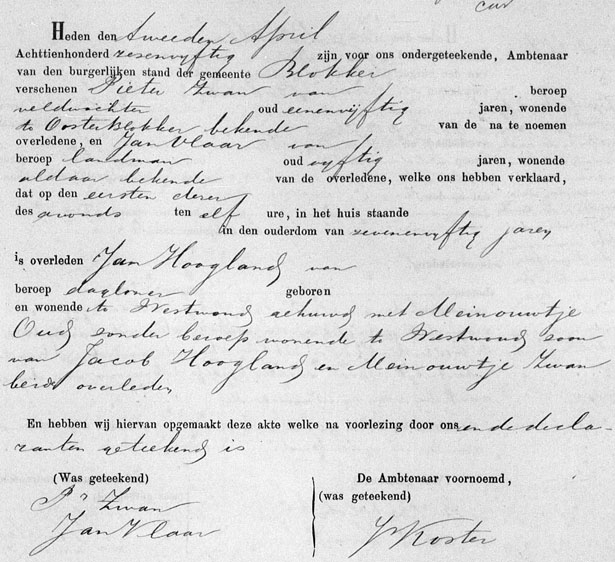 Heden den tweeden April
Achttienhonderd zesenvyftig zijn voor ons ondergeteekende, Ambtenaar
van den burgerlijken stand der gemeente Blokker
verschenen Pieter Zwan van beroep
veldwachter oud eenenvyftig jaren, wonende
te Oosterblokker bekende van de na te noemen
overledene, en Jan Vlaar van
beroep landman oud vyftig jaren, wonende
aldaar bekende van de overledene, welke ons hebben verklaard,
dat op den eersten dezer
des avonds ten elf ure, in het huis staande
in den ouderdom van zevenenvyftig jaren
is overleden Jan Hoogland van
beroep dagloner geboren
en wonende te Westwoud gehuwd met Meinouwtje
Oud zonder beroep wonende te Westwoud zoon
van Jacob Hoogland en Meinouwtje Zwan
beide overleden
En hebben wij hiervan opgemaakt deze akte welke na voorlezing door ons en de decla-
ranten geteekend is
(Was geteekend) De Ambtenaar voornoemd,
(was geteekend)
Pr Zwan
Jan Vlaar
Koster